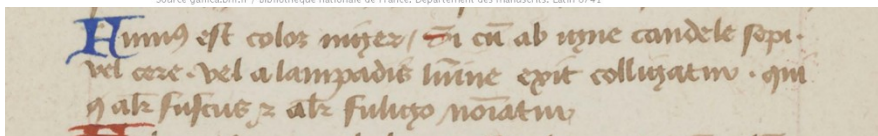 Source gallica.bnf.fr / Bibliothèque nationale de France. Département des manuscrits. Latin 6741
Fumꝰ est color niger / cū ab igne candele sepi·
vel cere · vel a lampadis lūine exit colligatur · qui
alr̄ fuscus ⁊ alr̄ fuligo noīatur